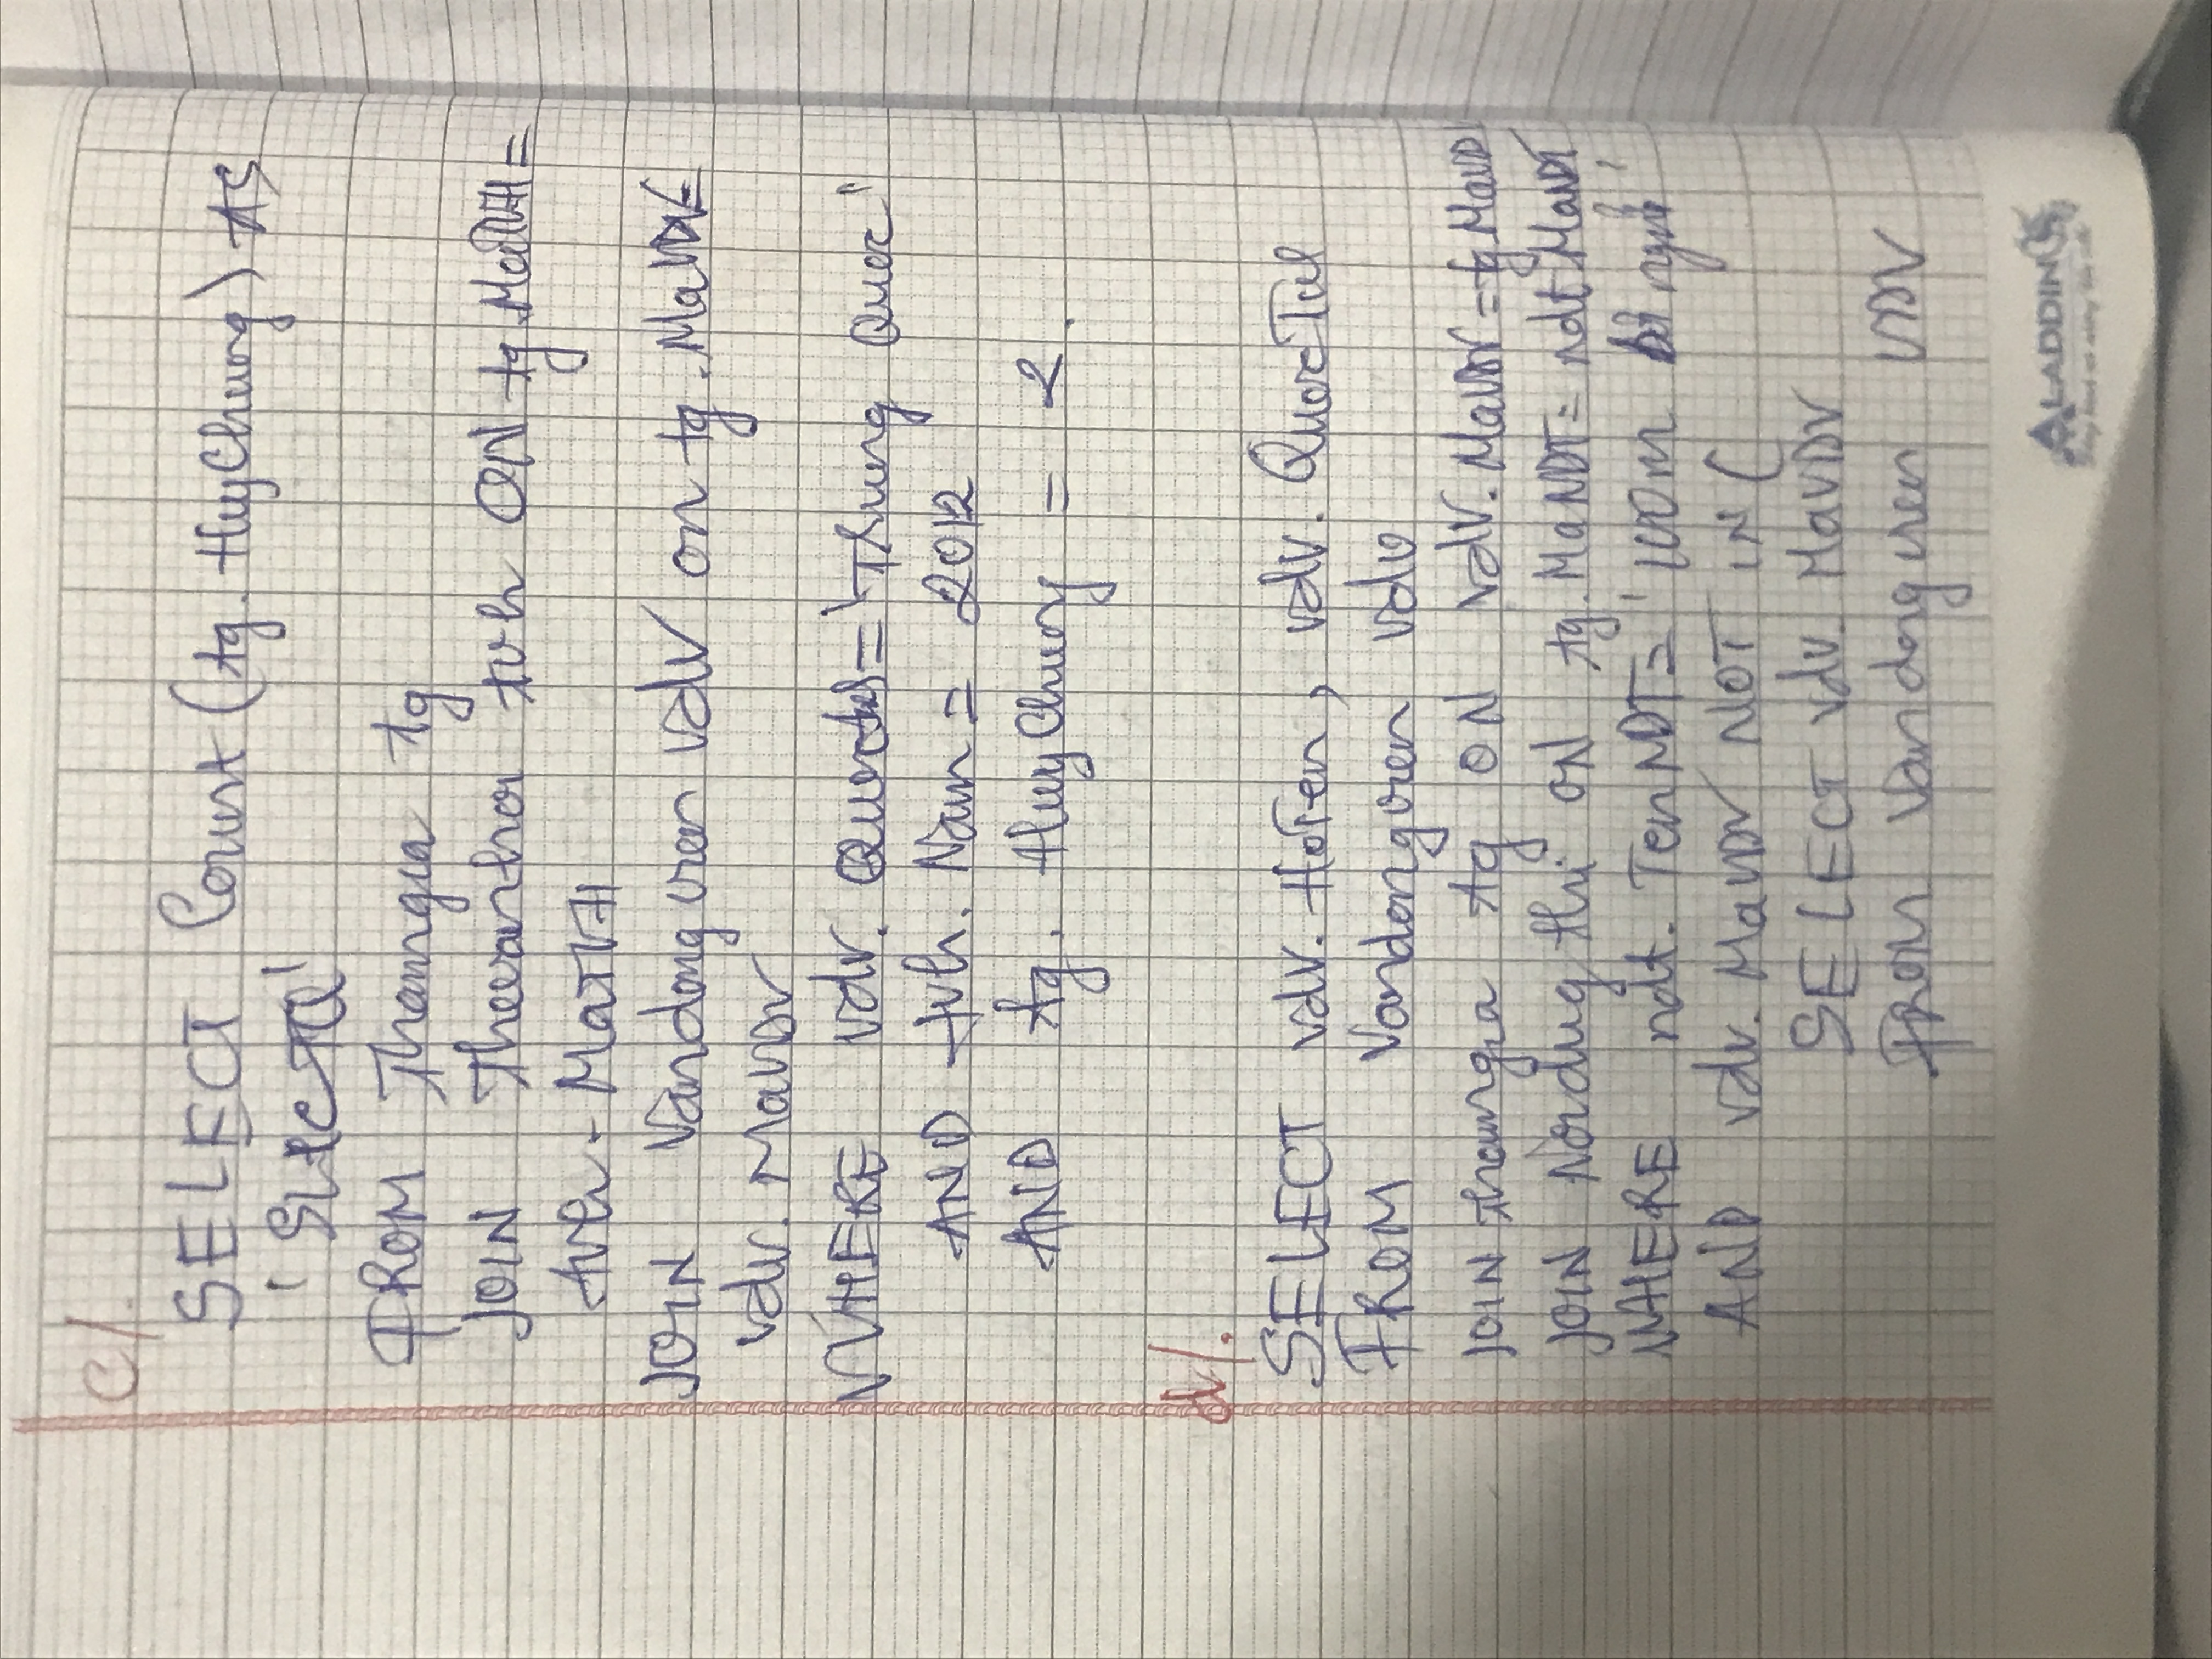 c/.
SELECT Count (tg. HuyChuong) AS
' SLHCTQ'
FROM Thamgia tg
JOIN Thevanhoi tvh ON tg.MaTVH =
tvh. MaTVH
JOIN Vandongvien vdv on tg.MaVDV=
vdv. MaVDV
WHERE vdv. = 'Trung Quoc'
AND tvh. Nam = 2012
AND tg. HuyChuong = 2.
d/.
SELECT vdv. HoTen, vdv. QuocTich
FROM Vandongvien vdv
JOIN thamgia tg ON vdv. MaVDV = tg.MaVD
JOIN Noidung thi ON tg. MaNDT = ndt.MaNDT
WHERE ndt. TenNDT = '100m bơi ngửa'
AND vdv. MaVDV NOT IN (
SELECT vdv. MaVDV
FROM Vandongvien VDV
ALADDIN